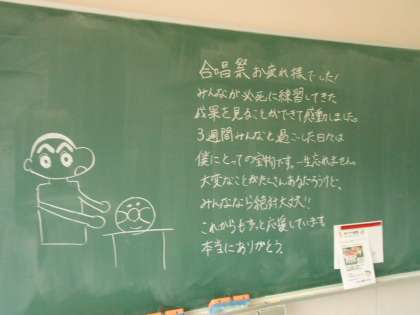 合唱祭お疲れ様でした!
みんなが必死に練習してきた
成果を見ることができて感動しました。
3週間みんなと過ごした日々は
僕にとっての宝物です。一生忘れません。
大変なことがたくさんあるだろうけど、
みんななら絶対大丈夫!!
これからもずっと応援しています。
本当にありがとう。